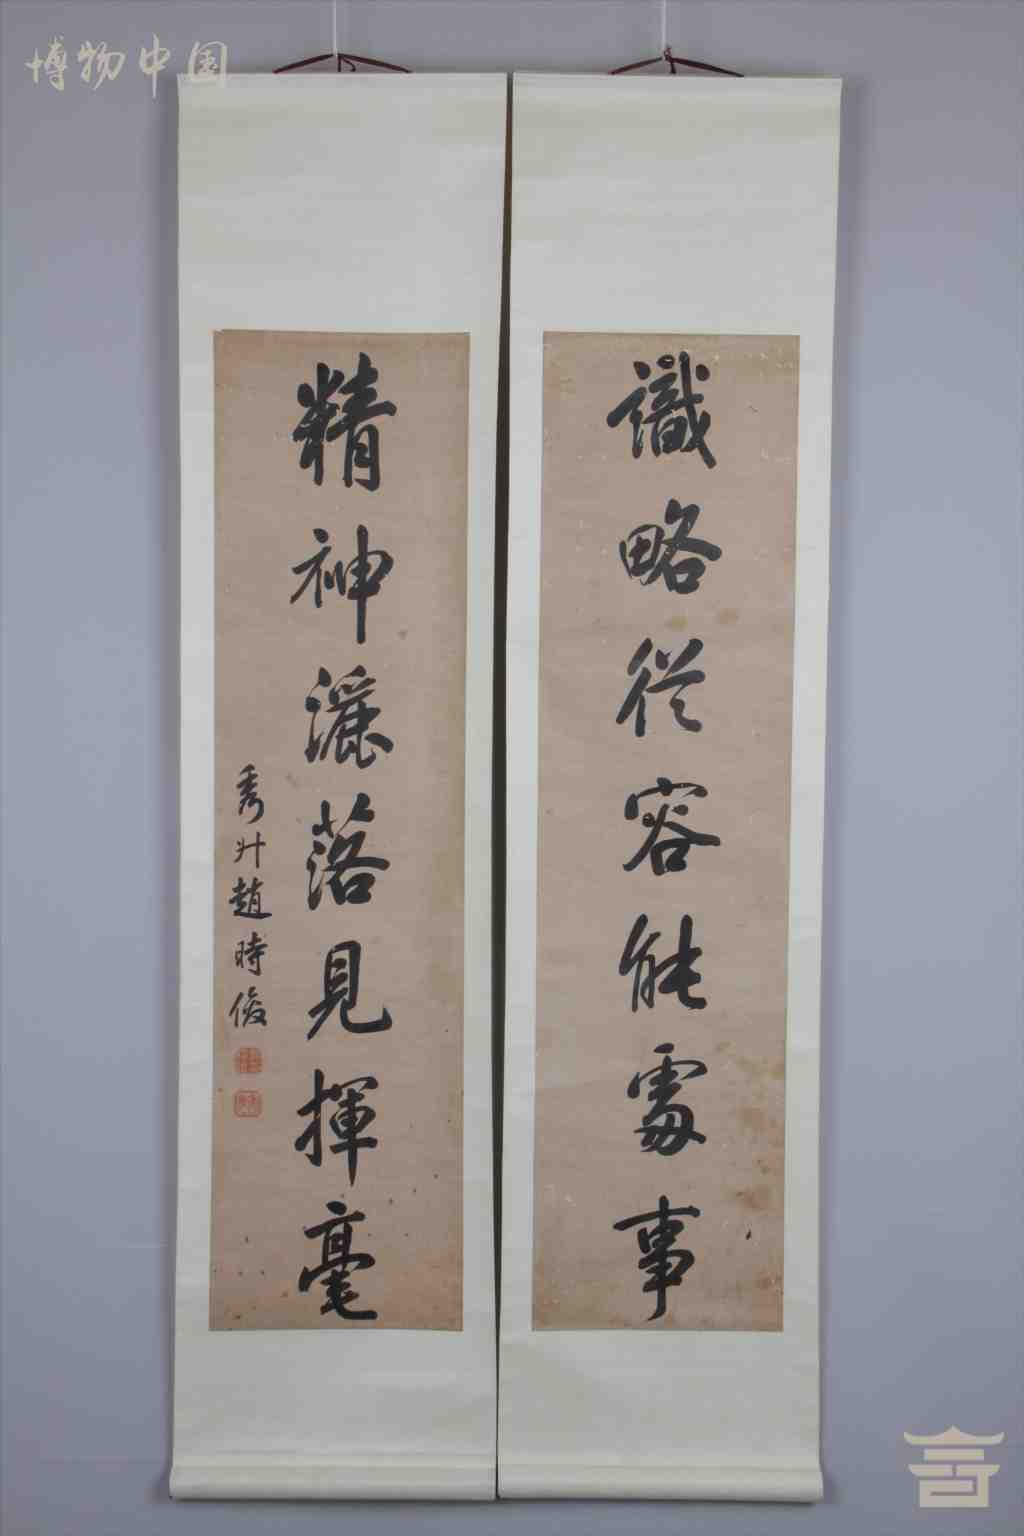 博物中国
識略從容能處事
精神灑落見揮毫
秀升趙時俊